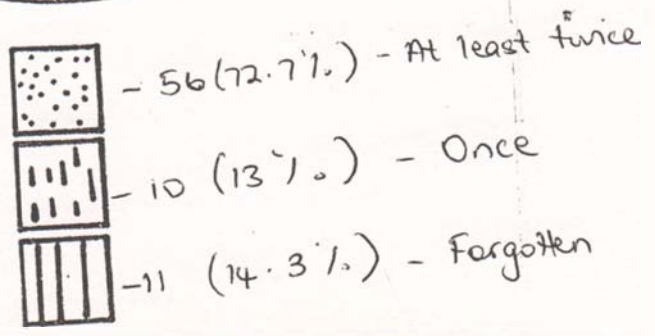 - 56 (72.7%) - At least twice
- 10 (13%) - Once
- 11 (14.3%) - Forgotten